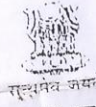 सत्यमेव जयते